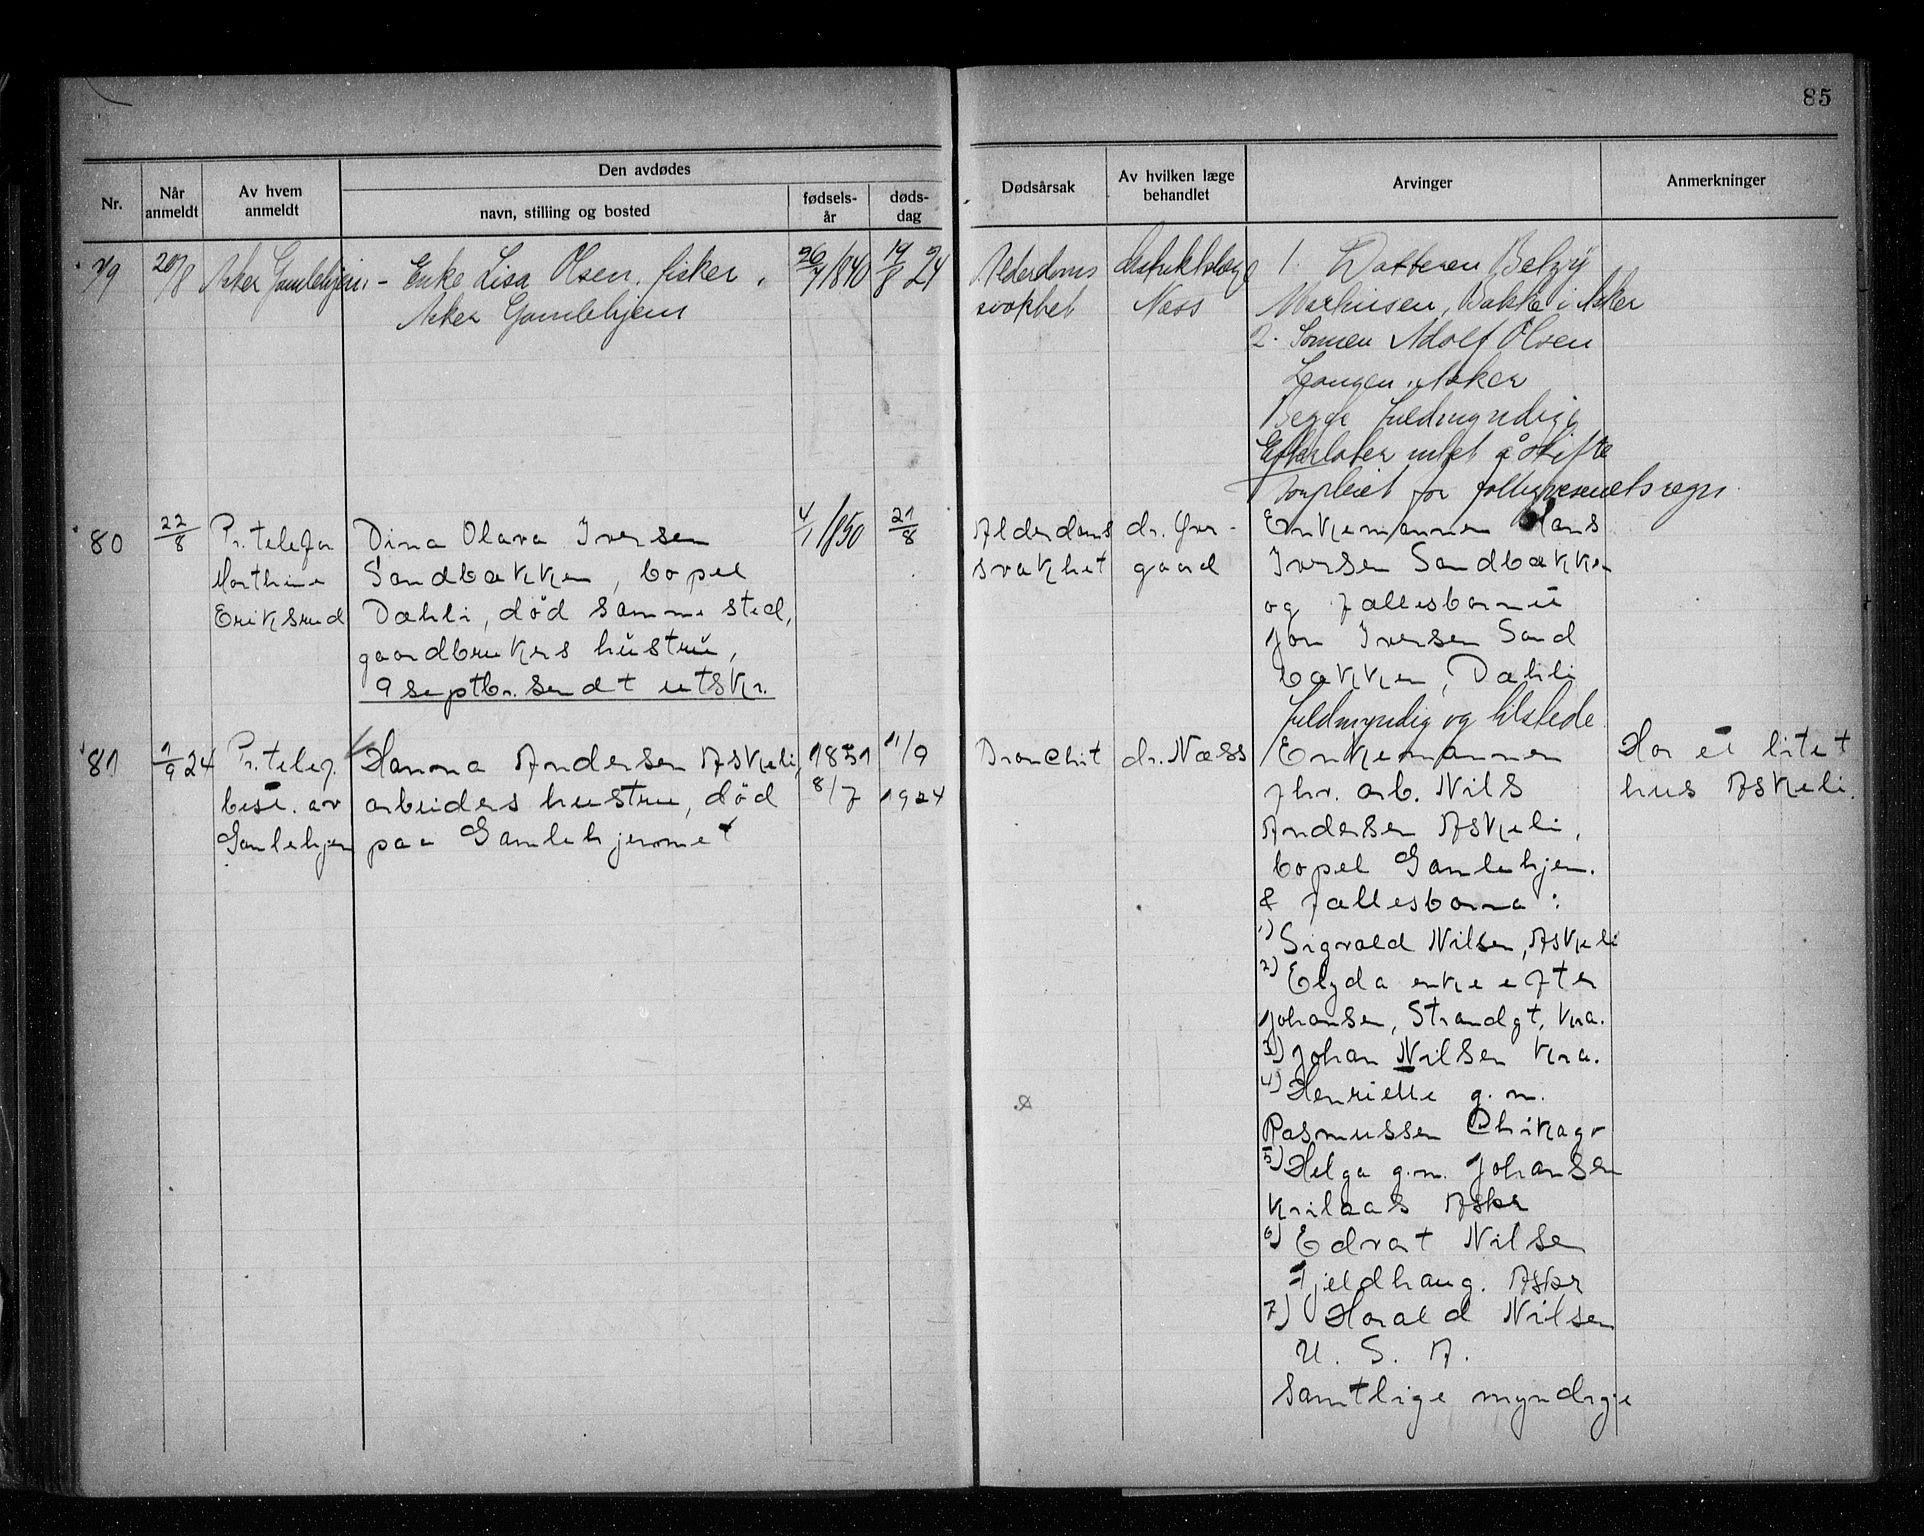 85
Nr.
Når anmeldt
Av hvem anmeldt
Den avdødes
navn, stilling og bosted
fødsels-år
døds-dag
Dødsårsak
Av hvilken læge behandlet
Arvinger
Anmerkninger
79
20/8
Asker Gamlehjem
- Enke Lisa Olsen. fisker.
Asker Gamlehjem
26/4 1840
19/8 24
Alderdoms
svakhet
distriktslæge
Næss
1. Datteren Betzy
Markusen, Bakke i Asker
2. Sønnen Adolf Olsen
Leangen. Asker
Begge fuldmyndige
Efterlater intet å skifte
forpleiet for
80
22/8
Pr. telefon
Marthine
Eriksrud
Dina Olava Iversen
Sandbakken, bopel
Dæhli, død samme sted,
gaardbrukers hustru,
9 septbr. sendt utskr.
4/1 1850
21/8
Alderdoms
svakhet
dr. Gver-
gaard
Enkemannen Hans
Iversen Sandbækken
og fællesbarnet
Jon Iversen Sand
bækken, Dæhli
fuldmyndig og tilstede
81
1/9 24
Pr. telef.
best. av
Gamlehjem
Hanna Andersen Askeli,
arbeiders hustru, død
paa Gamlehjemmet
1851
8/7
1/9
1924
Bronchit
dr. Næss
Enkemannen
fhv. arb. Nils
Andersen Askeli,
bopel Gamlehjem.
& fællesbarna:
1) Sigvald Nilsen, Askeli
2) Elyda enke efter
Johansen, Strandgt, Kra.
3) Johan Nilsen Kra.
4) Henriette g. m.
Rasmussen Chikago
5) Helga g.m. Johansen
Asker
6) Edvart Nilsen
Fjeldhaug. Asker
7) Harald Nilsen
U. S. A.
samtlige myndige
Har et litet
hus Askeli.